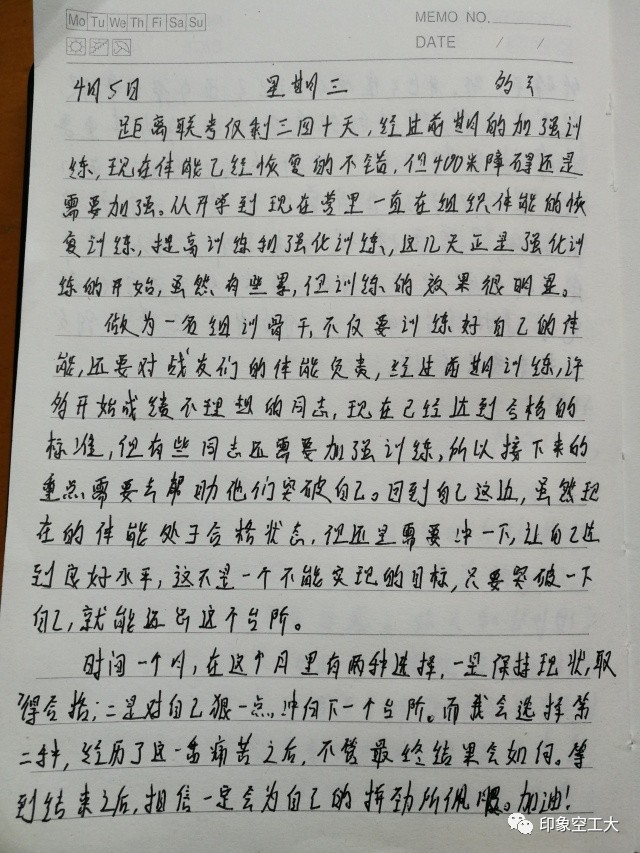 Mo Tu We Th Fr Sa Su
MEMO NO.
DATE / /
4月5日 星期三
距离联考仅剩三四十天，经过前期的加强训
练，现在体能已经恢复的不错，但400米障碍还是
需要加强。从开学到现在营里一直在组织体能的恢
复训练，提高训练和强化训练，这几天正是强化训
练的开始，虽然有些累，但训练的效果很明显。
做为一名组训骨干，不仅要训练好自己的体
能，还要对战友们的体能负责，经过前期训练，许
多开始成绩不理想的同志，现在已经达到合格的
标准，但有些同志还需要加强训练，所以接下来的
重点需要去帮助他们突破自己。回到自己这边，虽然现
在的体能处于合格状态，但还是需要冲一下，让自己达
到良好水平，这不是一个不能实现的目标，只要突破一下
自己，就能迈出这个台阶。
时间一个月，在这个月里有两种选择，一是保持现状，取
得合格；二是对自己狠一点，冲向下一个台阶。而我会选择第
二种，经历了这一番痛苦之后，不管最终结果会如何。等
到结束之后，相信一定会为自己的拼劲所佩服。加油！
印象空工大